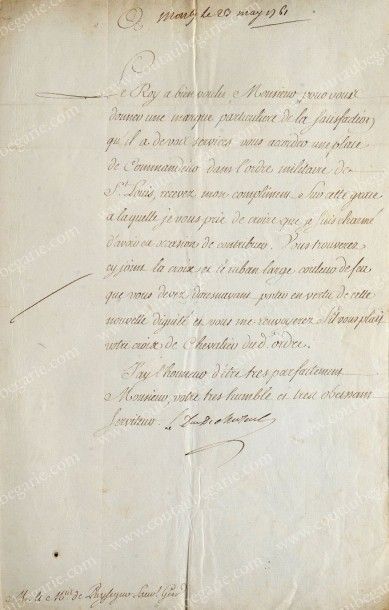 a Marly le 23 may 1761
Le Roy a bien voulu, Monsieur, pour vous
donner une marque particuliere de la satisfaction
qu'il a de vos services vous accorder une place
de Commandeur dans l'ordre militaire de
St Louis, recevez mon compliment sur cette grace
a laquelle je vous prie de croire que je suis charmé
d'avoir eu occasion de contribuer. Vous trouverez
cy joint la croix et le ruban large couleur de feu
que vous devez doresnavant porter en vertu de cette
nouvelle dignité et vous me renvoyerez s'il vous plait
votre croix de Chevalier du d. ordre.
J'ay l'honneur d'être tres parfaitement
Monsieur, votre tres humble et tres obeissant
Serviteur. Le
M. le Mis de Puysegur Lieut. Gen.
www.coutaubegarie.com